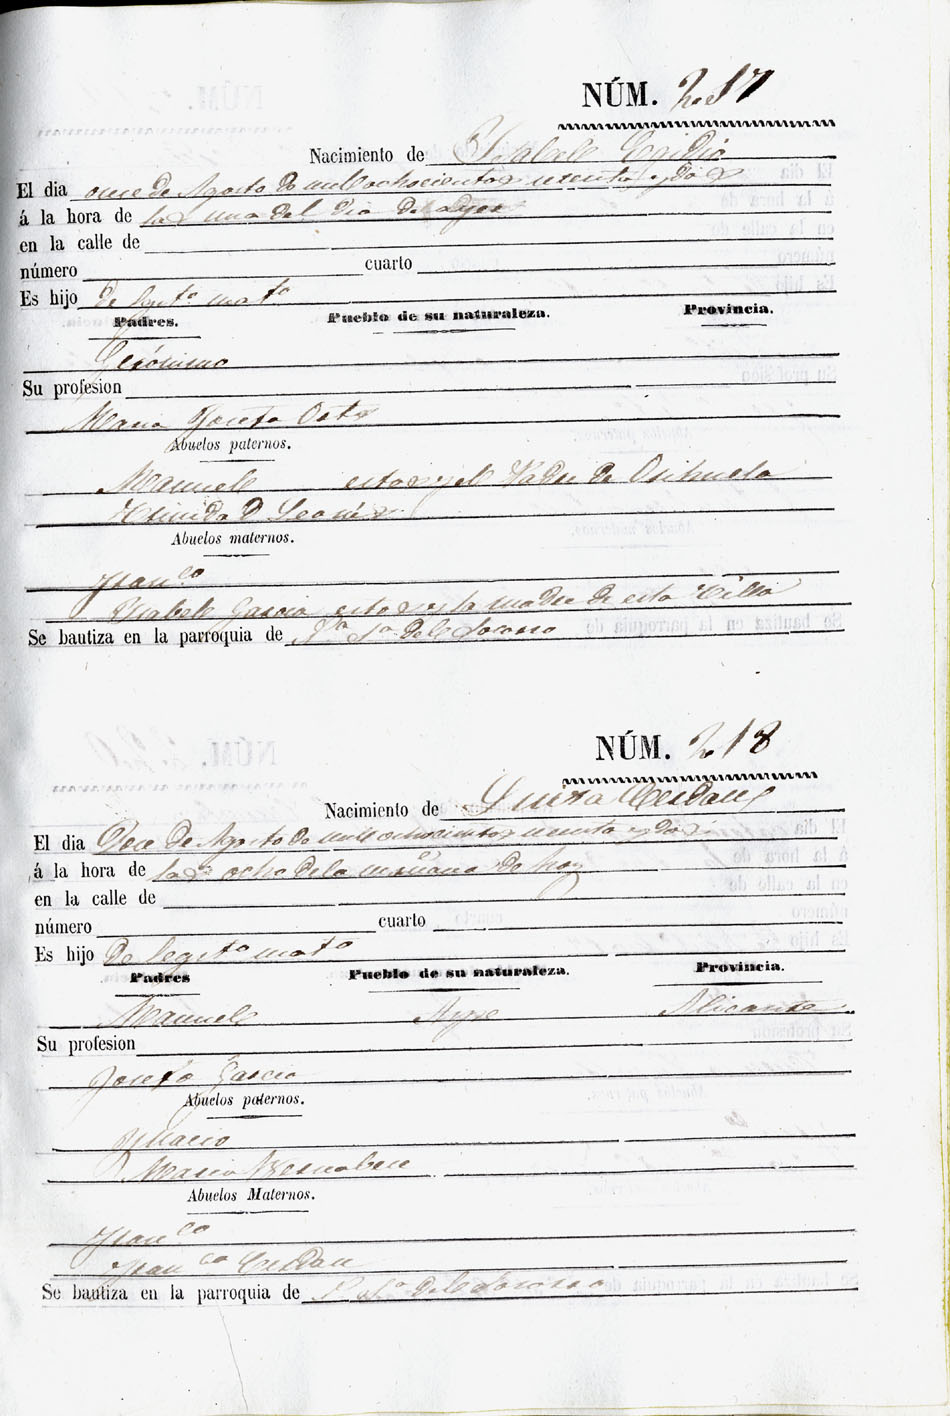 NÚM. 217
Nacimiento de Isabel
El dia once de Agosto de mil ochocientos sesenta y dos
á la hora de la una del dia de ayer
en la calle de
número cuarto
Es hijo de legta mato
Padres. Pueblo de su naturaleza. Provincia.
Gerónimo
Su profesion
Maria Josefa Orts
Abuelos paternos.
Manuel estos y el Padre de Orihuela
Trinidad
Abuelos maternos.
Franco
Ysabel Garcia estos y la madre de esta Villa
Se bautiza en la parroquia de Na Sa del Socorro
NÚM. 218
Nacimiento de Luisa Cerdan
El dia Doce de Agosto de mil ochocientos sesenta y dos
á la hora de las ocho de la mañana de hoy
en la calle de
número cuarto
Es hijo de legto mato
Padres Pueblo de su naturaleza. Provincia.
Manuel Aspe Alicante
Su profesion
Josefa Garcia
Abuelos paternos.
Ignacio
Maria Bernabeu
Abuelos Maternos.
Franco
Franca Cerdan
Se bautiza en la parroquia de Sa del Socorro